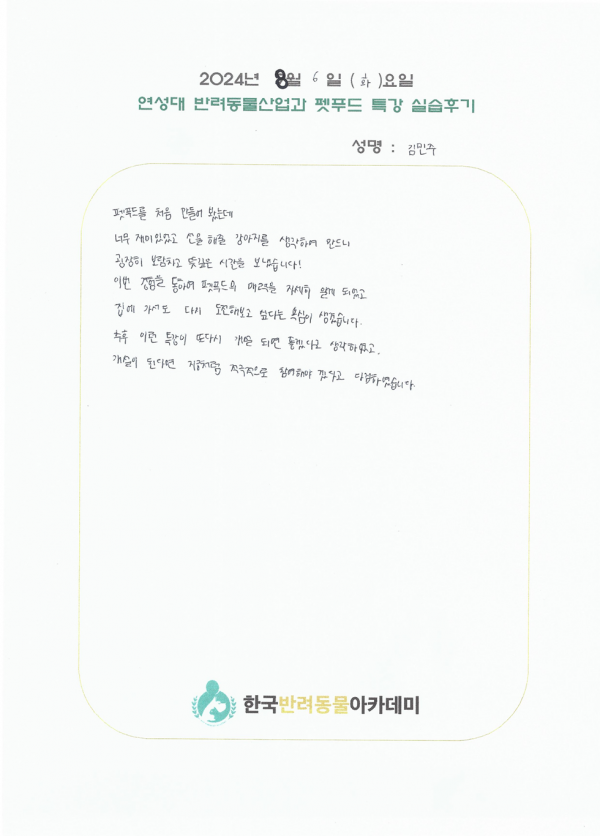 2024년 8월 6일 (화)요일
연성대 반려동물산업과 펫푸드 특강 실습후기
성명 : 김민주
펫푸드를 처음 만들어 봤는데
너무 재미있었고 선물 해줄 강아지를 생각하며 만드니
굉장히 보람차고 뜻깊은 시간을 보냈습니다!
이번 경험을 통하여 펫푸드의 매력을 자세히 알게 되었고
집에 가서도 다시 도전해보고 싶다는 욕심이 생겼습니다.
추후 이런 특강이 또다시 개설 되면 좋겠다고 생각하였고,
개설이 된다면 지금처럼 적극적으로 참여해야 겠다고 다짐하였습니다.
한국반려동물아카데미